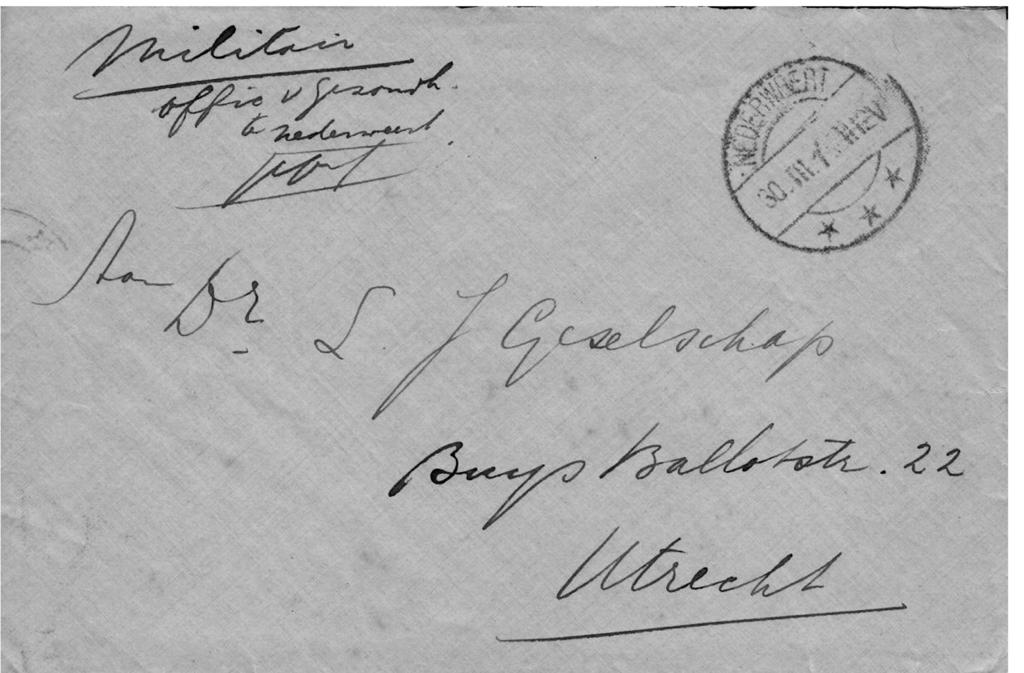 Militair
offic v gezondh.
te nederweert
Aan Dr L J Geselschap
Buys Ballotstr. 22
Utrecht
NEDERWEERT
30.III.1
12V